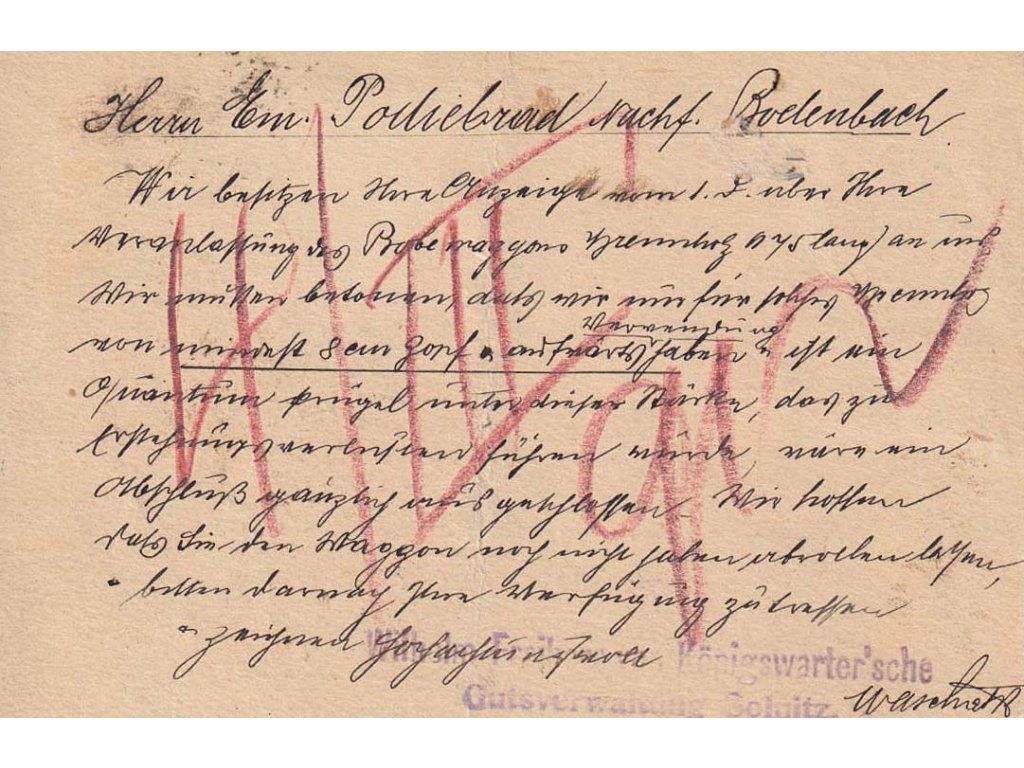 Herrn Em. Podiebrad Nachf. Bodenbach
Wir besitzen Ihre Anzeige vom 1. d. über Ihre
Veranlassung des Probewaggons Brennholz 0 75 lang) an uns
Wir müssen betonen, dass wir nur für solches Brennholz
Verwendung
von mindest 8 cm Zopf u. aufwärts haben u. ist ein
Quantum Prügel unter dieser Stärke, das zu
Erstehungsverlusten führen würde, wäre ein
Abschluß gänzlich ausgeschlossen. Wir hoffen
dass Sie den Waggon noch nicht haben abrollen lassen,
u. bitten darnach Ihre Verfügung zu treffen
u. zeichnen Hochachtungsvoll
Wilhelm Königswarter'sche
Gutsverwaltung